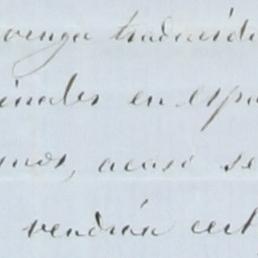 venga traducido
inales en espa
mos, acaso se
vendrán cert